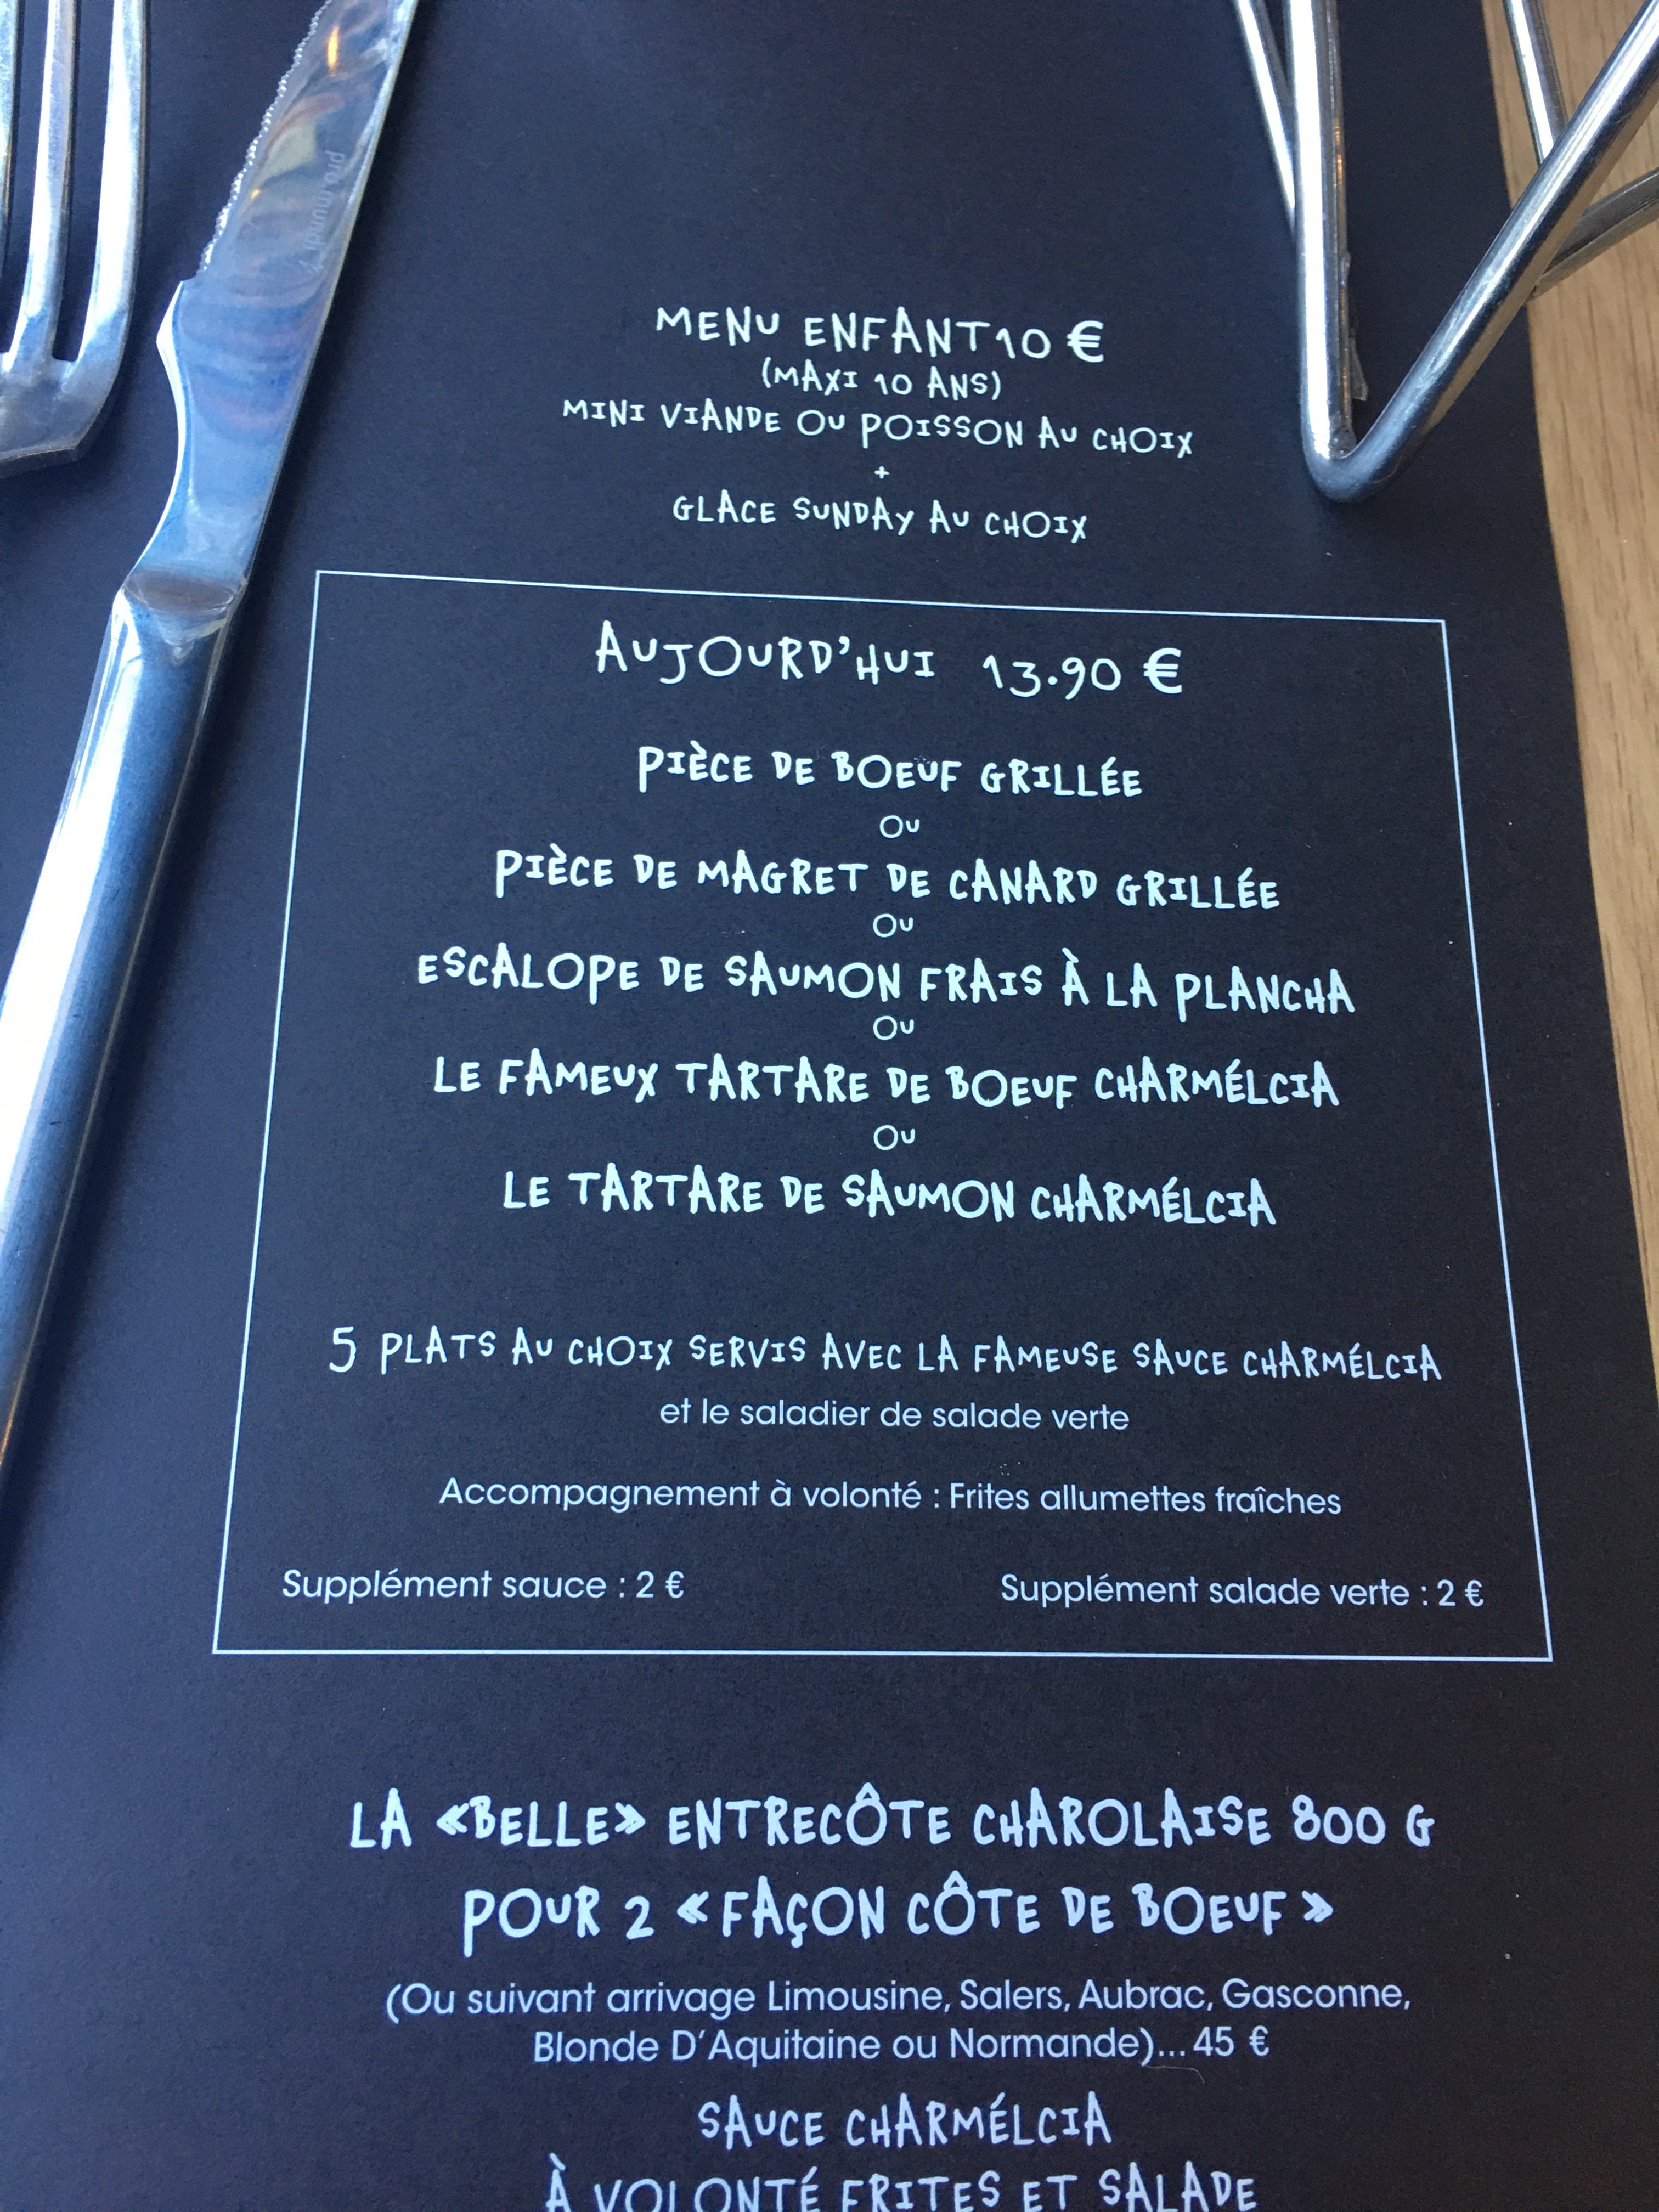 pro mundi
MENU ENFANT 10 €
(MAXI 10 ANS)
MINI VIANDE OU POISSON AU CHOIX
+
GLACE SUNDAY AU CHOIX
AUJOURD'HUI 13.90 €
PIÈCE DE BOEUF GRILLÉE
OU
PIÈCE DE MAGRET DE CANARD GRILLÉE
OU
ESCALOPE DE SAUMON FRAIS À LA PLANCHA
OU
LE FAMEUX TARTARE DE BOEUF CHARMÉLCIA
OU
LE TARTARE DE SAUMON CHARMÉLCIA
5 PLATS AU CHOIX SERVIS AVEC LA FAMEUSE SAUCE CHARMÉLCIA
et le saladier de salade verte
Accompagnement à volonté : Frites allumettes fraîches
Supplément sauce : 2 €
Supplément salade verte : 2 €
LA «BELLE» ENTRECÔTE CHAROLAISE 800 G
POUR 2 « FAÇON CÔTE DE BOEUF »
(Ou suivant arrivage Limousine, Salers, Aubrac, Gasconne,
Blonde D'Aquitaine ou Normande)... 45 €
SAUCE CHARMÉLCIA
À VOLONTÉ FRITES ET SALADE